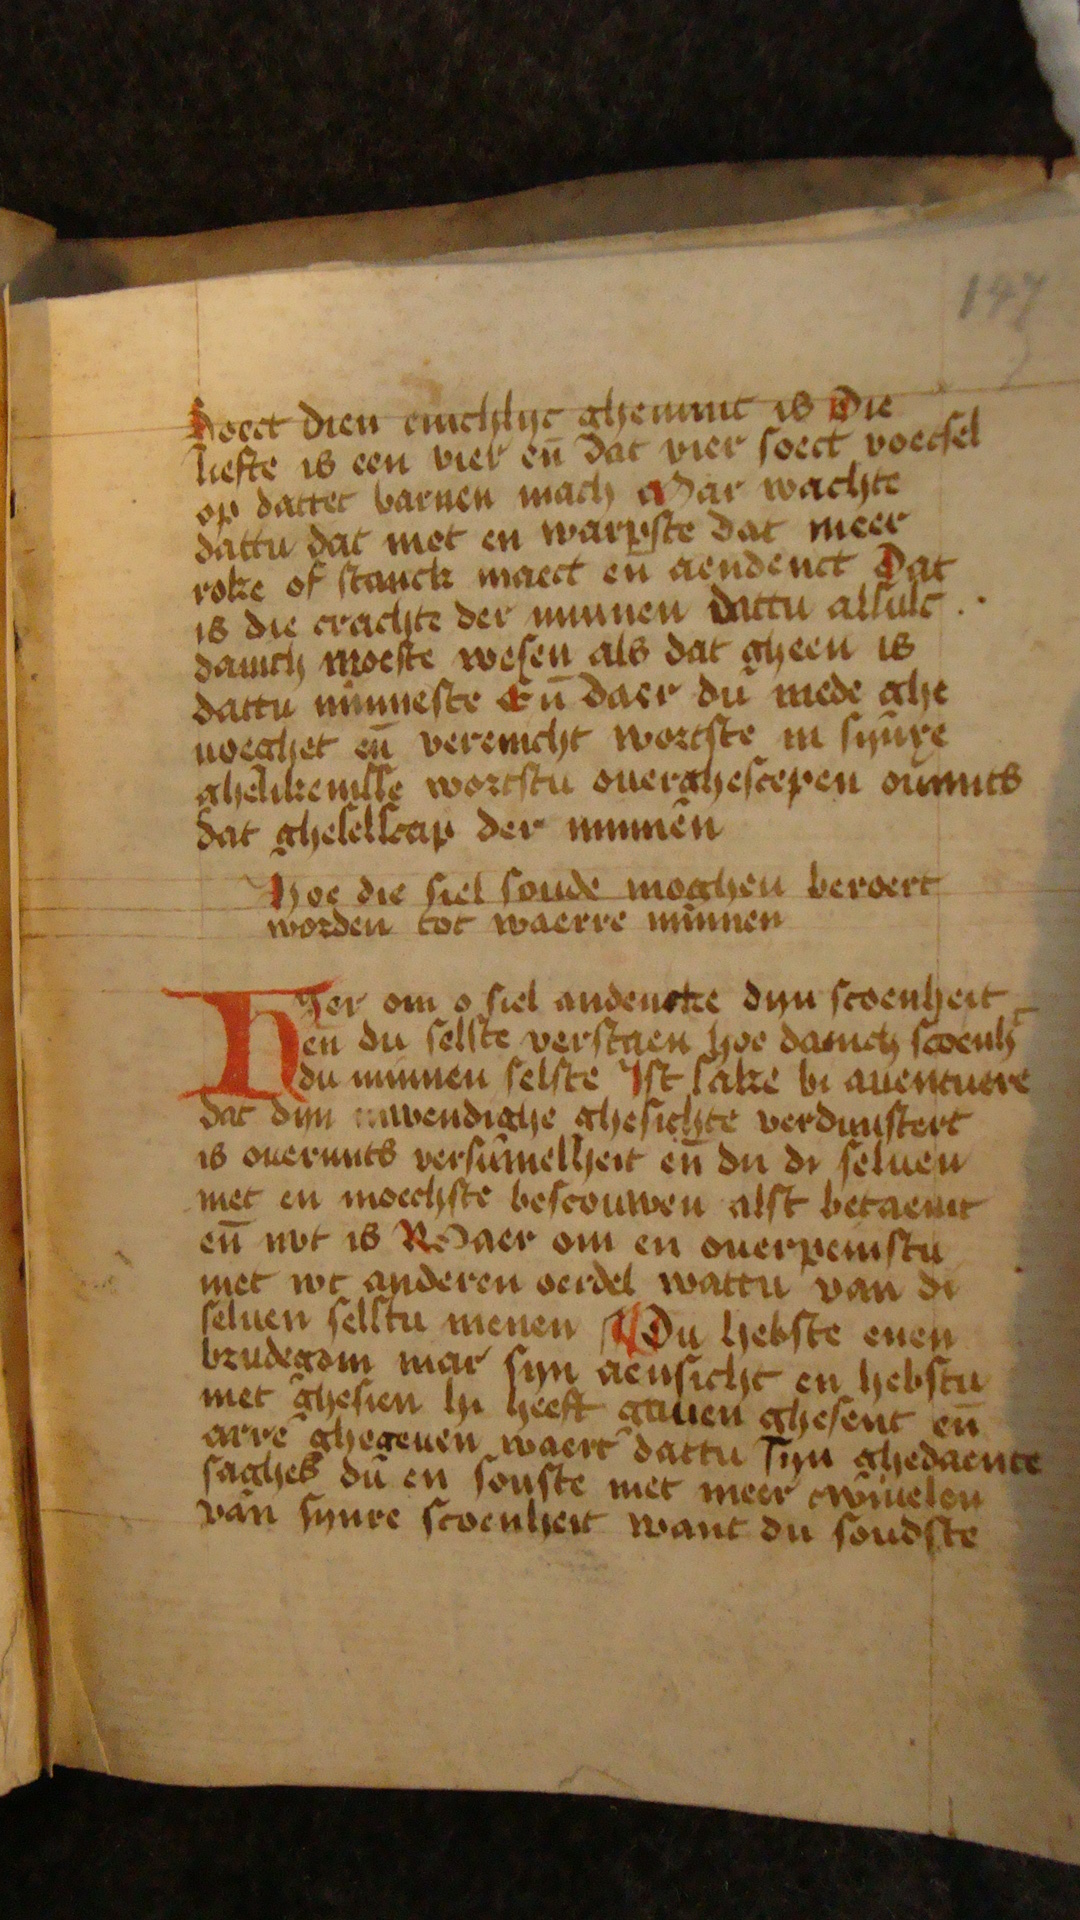 147
soect dien enichlijc ghemint is Die
liefte is een vier en̄ dat vier soect voetsel
op dattet barnen mach Mar wachte
dattu dat niet en warpste dat meer
roke of stanck maect en̄ aendenct Dat
is die crachte der minnen dattu alsulc
danich moeste wesen als dat gheen is
dattu minneste En̄ daer du mede ghe
uoeghet en̄ verenicht wortste in synre
ghelikenisse wortstu ouerghescepen oumits
dat gheselscap der minnen
Hoe die siel soude moghen beroert
worden tot waerre minnen
Hier om o siel andencke dijn scoenheit
en̄ du selste verstaen hoe danich scoenh
du minnen selste Ist sake bi auentuere
dat dijn inwendighe ghesichte verduustert
is ouermits versumelheit en̄ du di seluen
niet en moechste bescouwen alst betaemt
en̄ nvt is Maer om en ouerpeinstu
niet wt anderen oerdel wattu van di
seluen selltu menen Du hebste enen
brudegom mar syn aensicht en hebstu
niet ghesien hi heeft gauen ghesent en̄
arre ghegeuen waert dattu syn ghedaente
saghes du en souste niet meer twiuelen
van synre scoenheit want du soudste